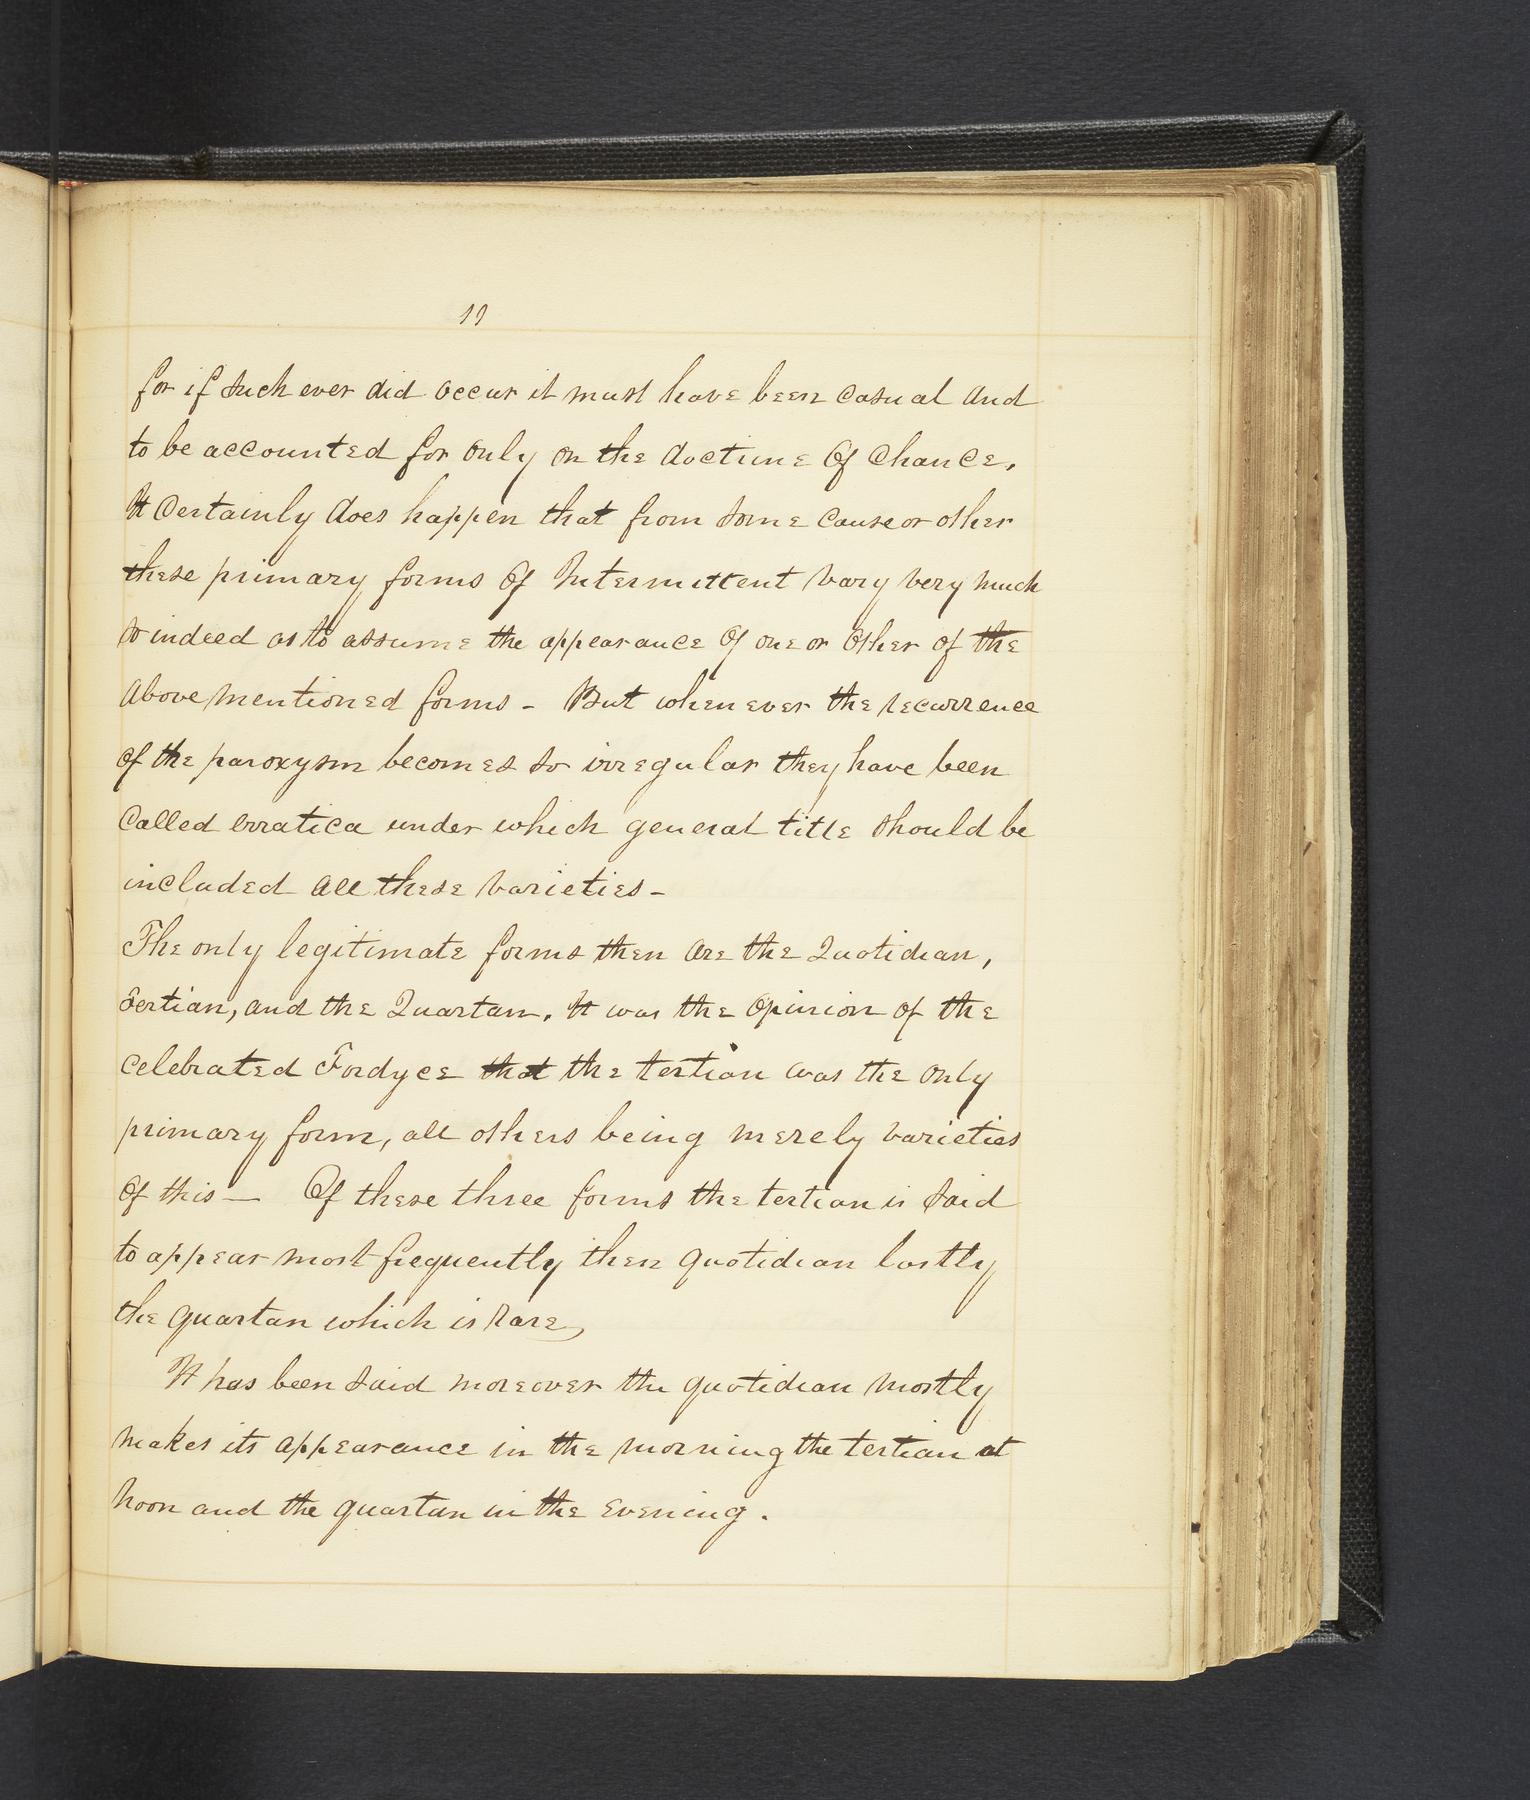 11
for if such ever did occur it must have been casual and
to be accounted for only on the doctrine of chance.
It certainly does happen that from some cause or other
these primary forms of Intermittent vary very much
so indeed as to assume the appearance of one or other of the
above mentioned forms - But when ever the recurrence
of the paroxysm becomes so irregular they have been
called erratica under which general title should be
included all these varieties -
The only legitimate forms then are the Quotidian,
Tertian, and the Quartan. It was the opinion of the
celebrated Fordyce that the tertian was the only
primary form, all others being merely varieties
of this — Of these three forms the tertian is said
to appear most frequently then quotidian lastly
the quartan which is rare,
It has been said moreover the quotidian mostly
makes its appearance in the morning the tertian at
noon and the quartan in the evening.